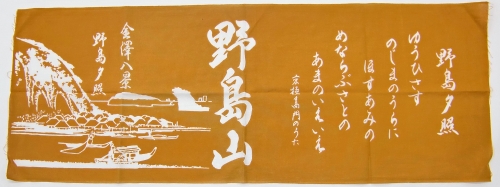 野島夕照
ゆうひさす
のじまのうらに
ほすあみの
めならぶさとの
あまのいえいえ
京極高門のうた
野島山
金澤八景
野島夕照